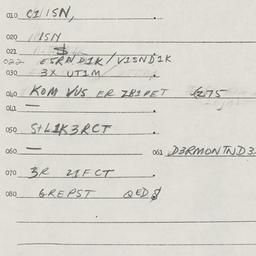 010 C1/1SN,
020 /1SN
021 $
022 ESRND1K/V1SND1K
030 3X UT1M
040 KOM VUS ER 2B1PET G275
041 —
050 S+L1K3RCT
060 — 061 D3RMONTND3
070 3R 21FCT
080 GREPST QED$